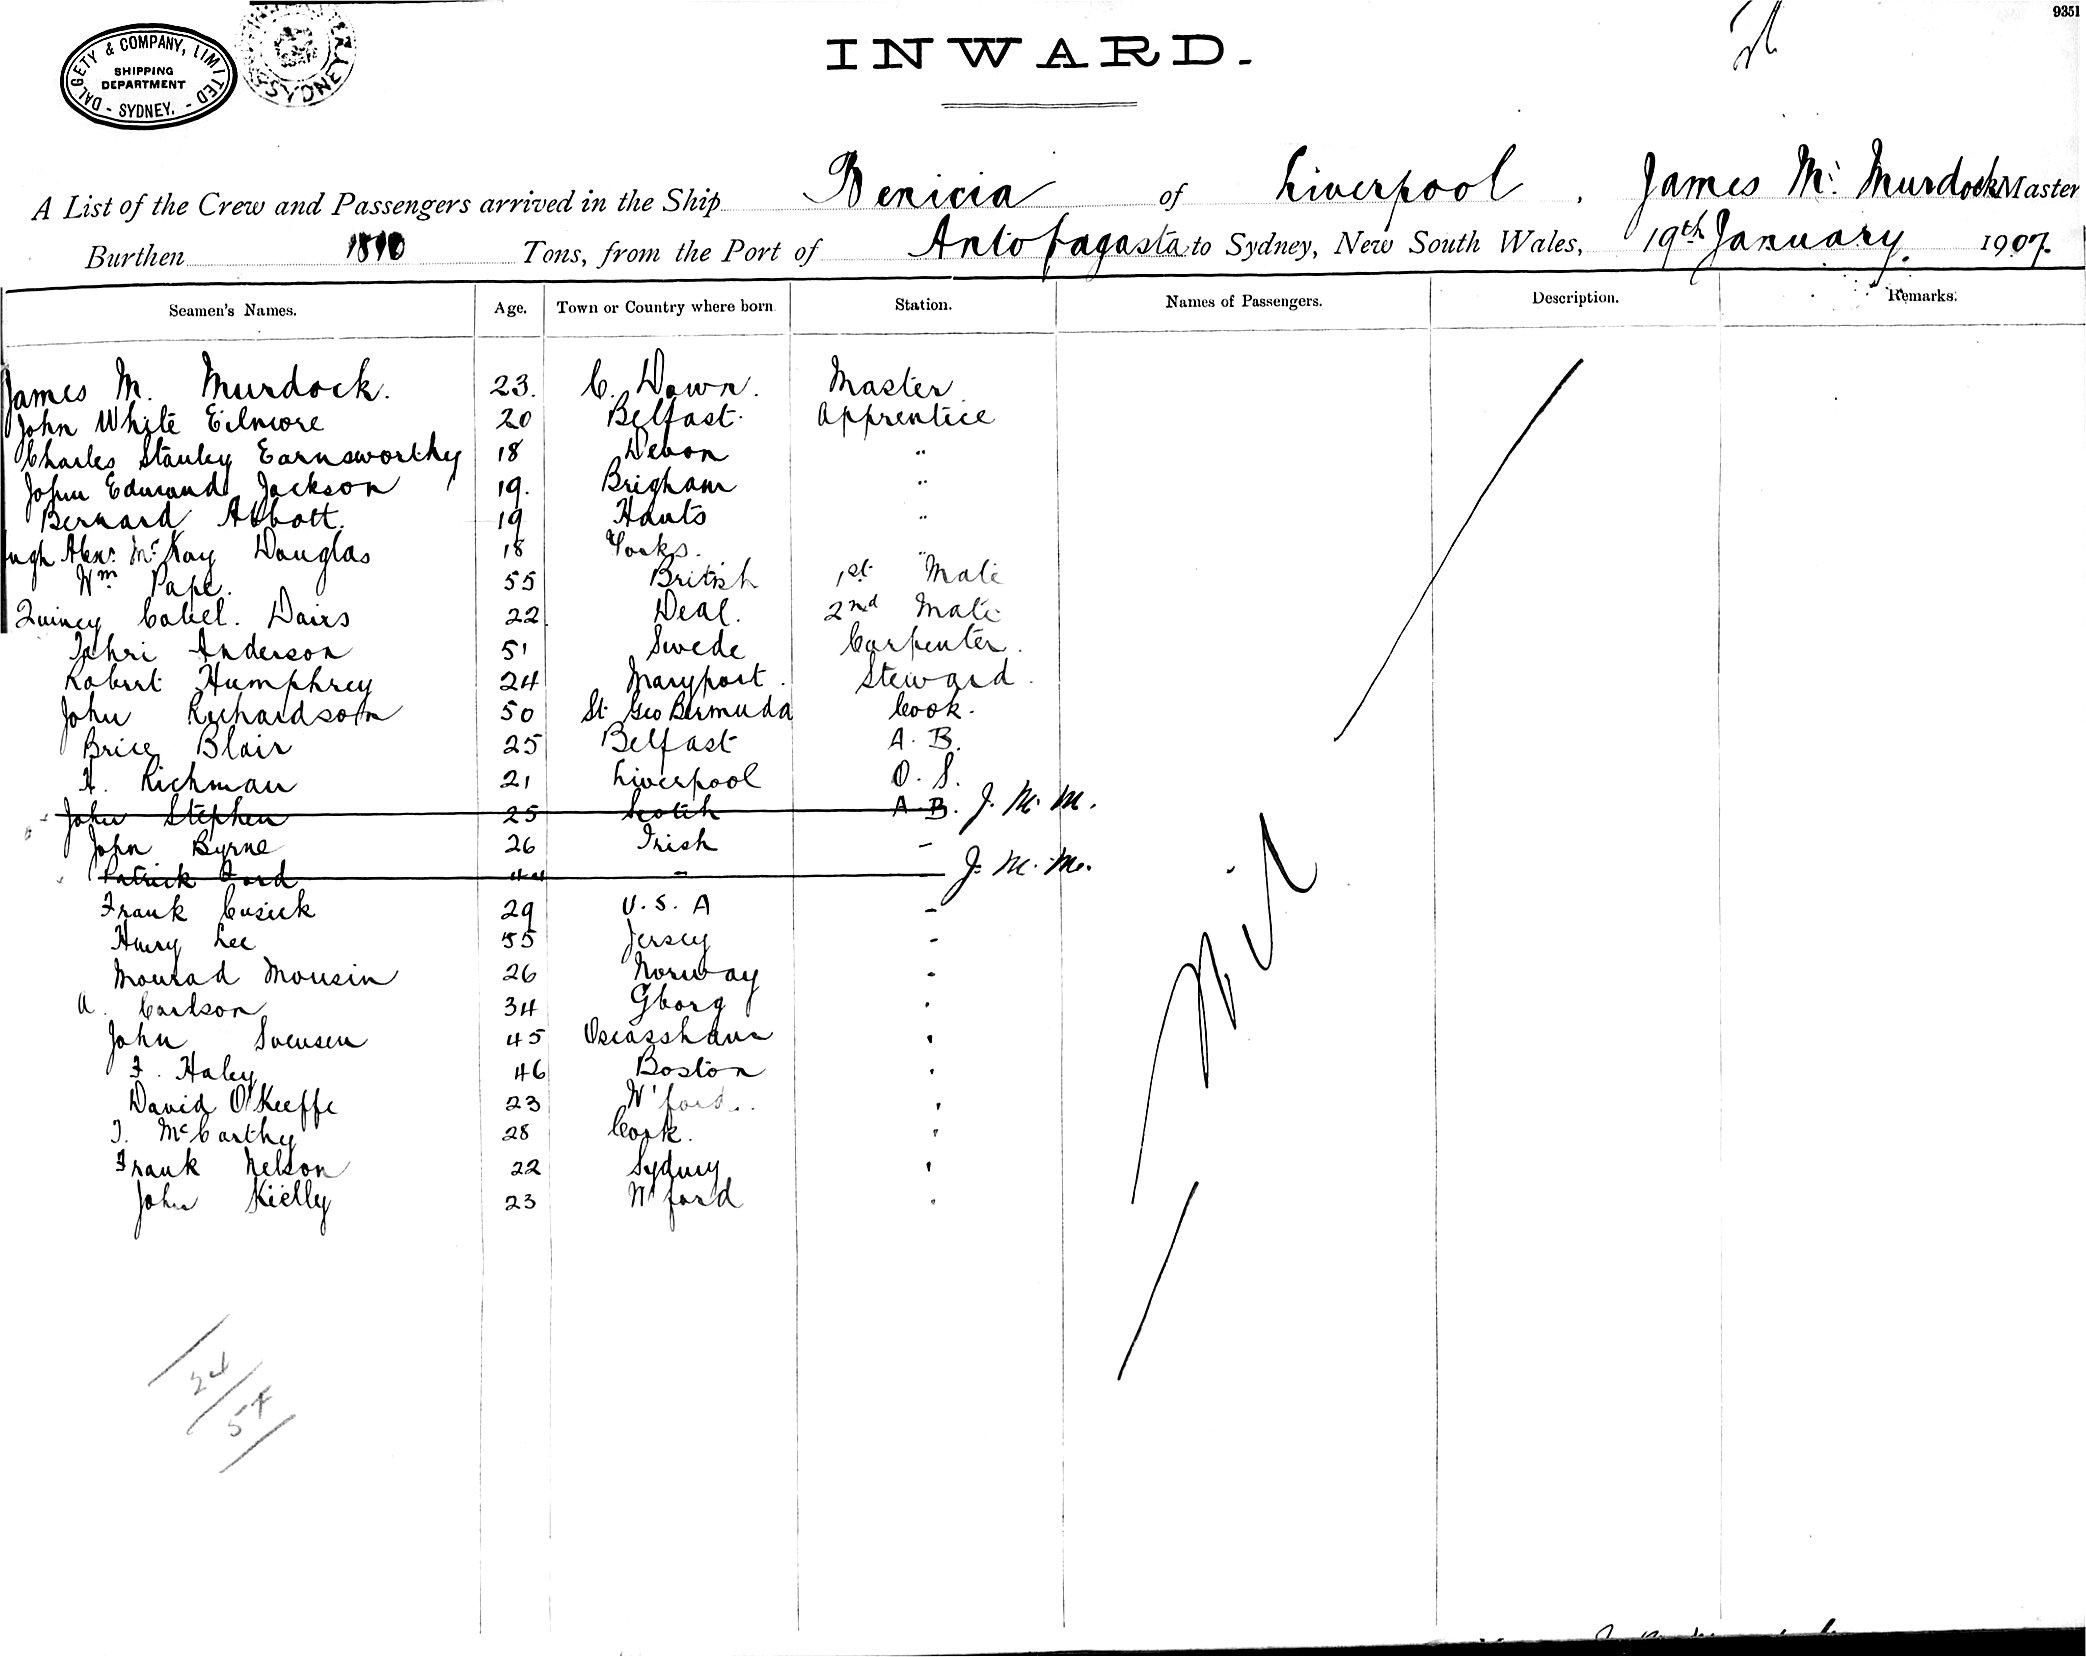 9351
DALGETY & COMPANY, LIMITED
SHIPPING
DEPARTMENT
- SYDNEY. -
SYDNEY
INWARD.
A List of the Crew and Passengers arrived in the Ship Benicia of Liverpool, James Mc Murdock Master
Burthen 1810 Tons, from the Port of Antofagasta to Sydney, New South Wales, 19th January 1907.
Seamen's Names. Age. Town or Country where born Station. Names of Passengers. Description. Remarks.
James M. Murdock. 23. C. Down. Master
John White Eilmore 20 Belfast. Apprentice
Charles Stanley Earnsworthy 18 Devon "
John Edmund Jackson 19. Brigham "
Bernard Abbott. 19 Hants "
ugh Alexr. McKay Douglas 18 Yorks. "
Wm Pape. 55 British 1st Mate
Quincy Davis 22. Deal. 2nd Mate
Anderson 51 Swede Carpenter.
Robert Humphrey 24 Maryport. Steward.
John Richardson 50 St Geo Bermuda Cook.
Brice Blair 25 Belfast A.B.
H. Richman 21 Liverpool O.S.
John Stephen 25 Scotch A.B. J. M. M.
John Byrne 26 Irish -
Patrick Ford 44 - - J. M. M.
Frank Cusick 29 U.S.A -
Harry Lee 55 Jersey -
Mourad Mousin 26 Norway -
A. Carlson 34 Gborg
John Svensen 45 Oscarshavn
F. Haley 46 Boston
David O'Keeffe 23 W'ford..
T. McCarthy 28 Cork.
Frank Nelson 22 Sydney
John Kielly 23 W'ford
Nil
24
54